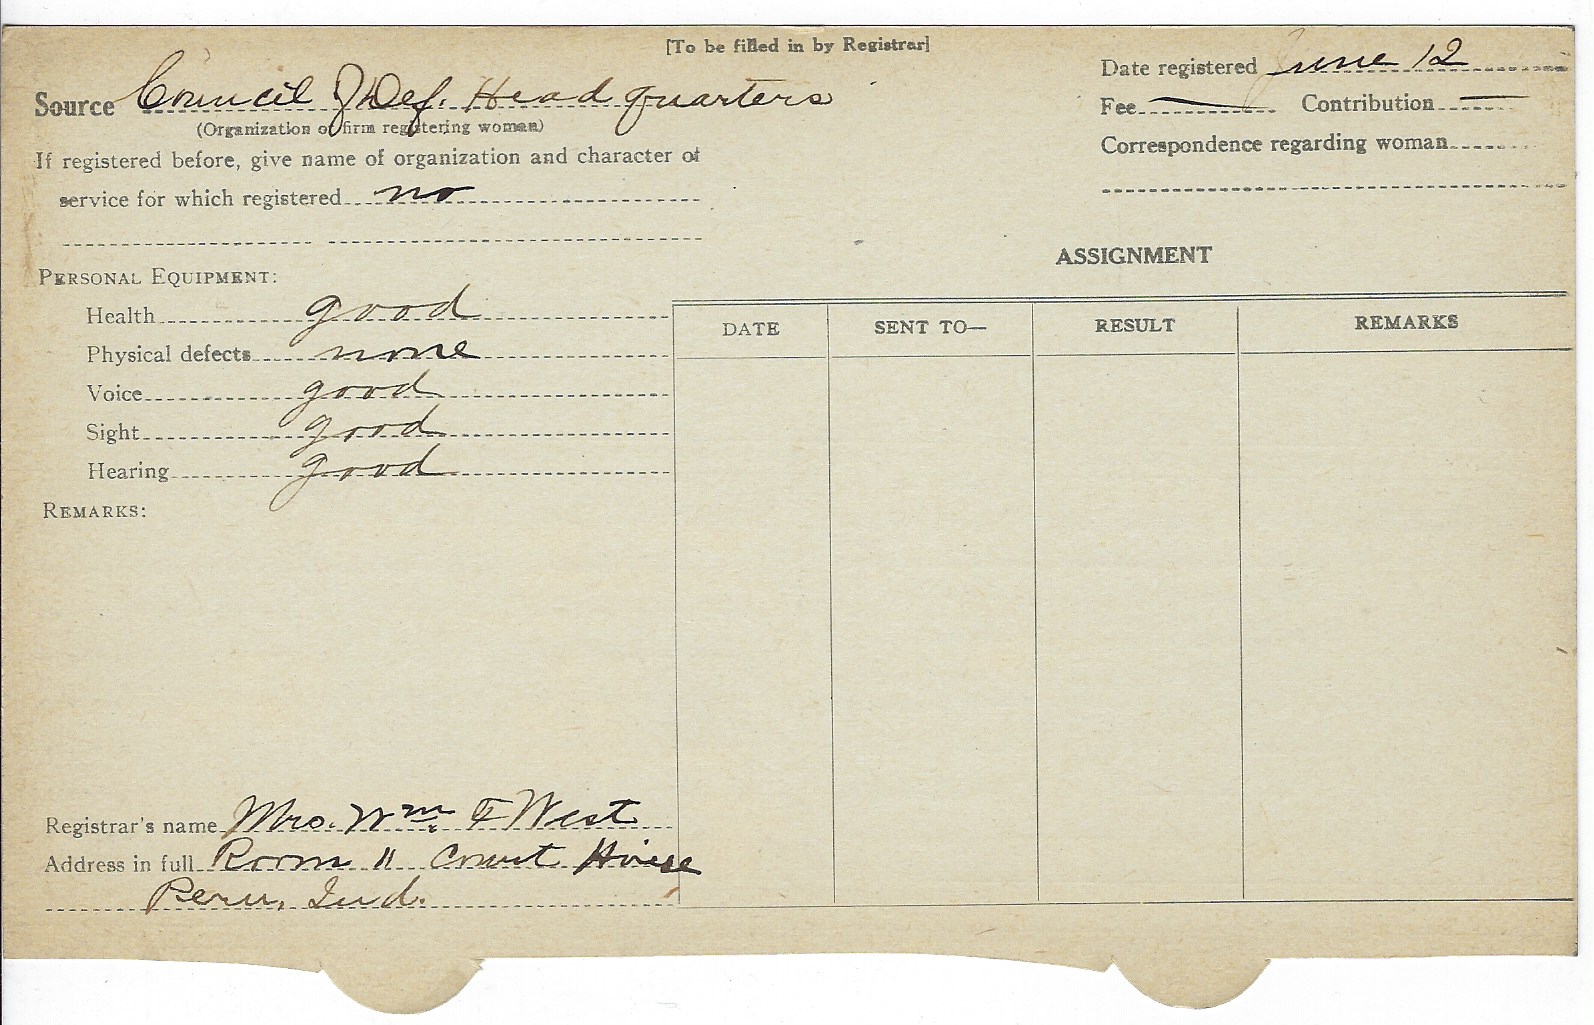 [To be filled in by Registrar]
Source Council of Def. Head quarters
(Organization or firm registering woman)
If registered before, give name of organization and character of
service for which registered no
Date registered June 12
Fee — Contribution —
Correspondence regarding woman
PERSONAL EQUIPMENT:
Health good
Physical defects none
Voice good
Sight good
Hearing good
REMARKS:
ASSIGNMENT
DATE SENT TO— RESULT REMARKS
Registrar's name Mrs. Wm F West
Address in full Room 11 Court House
Peru, Ind.